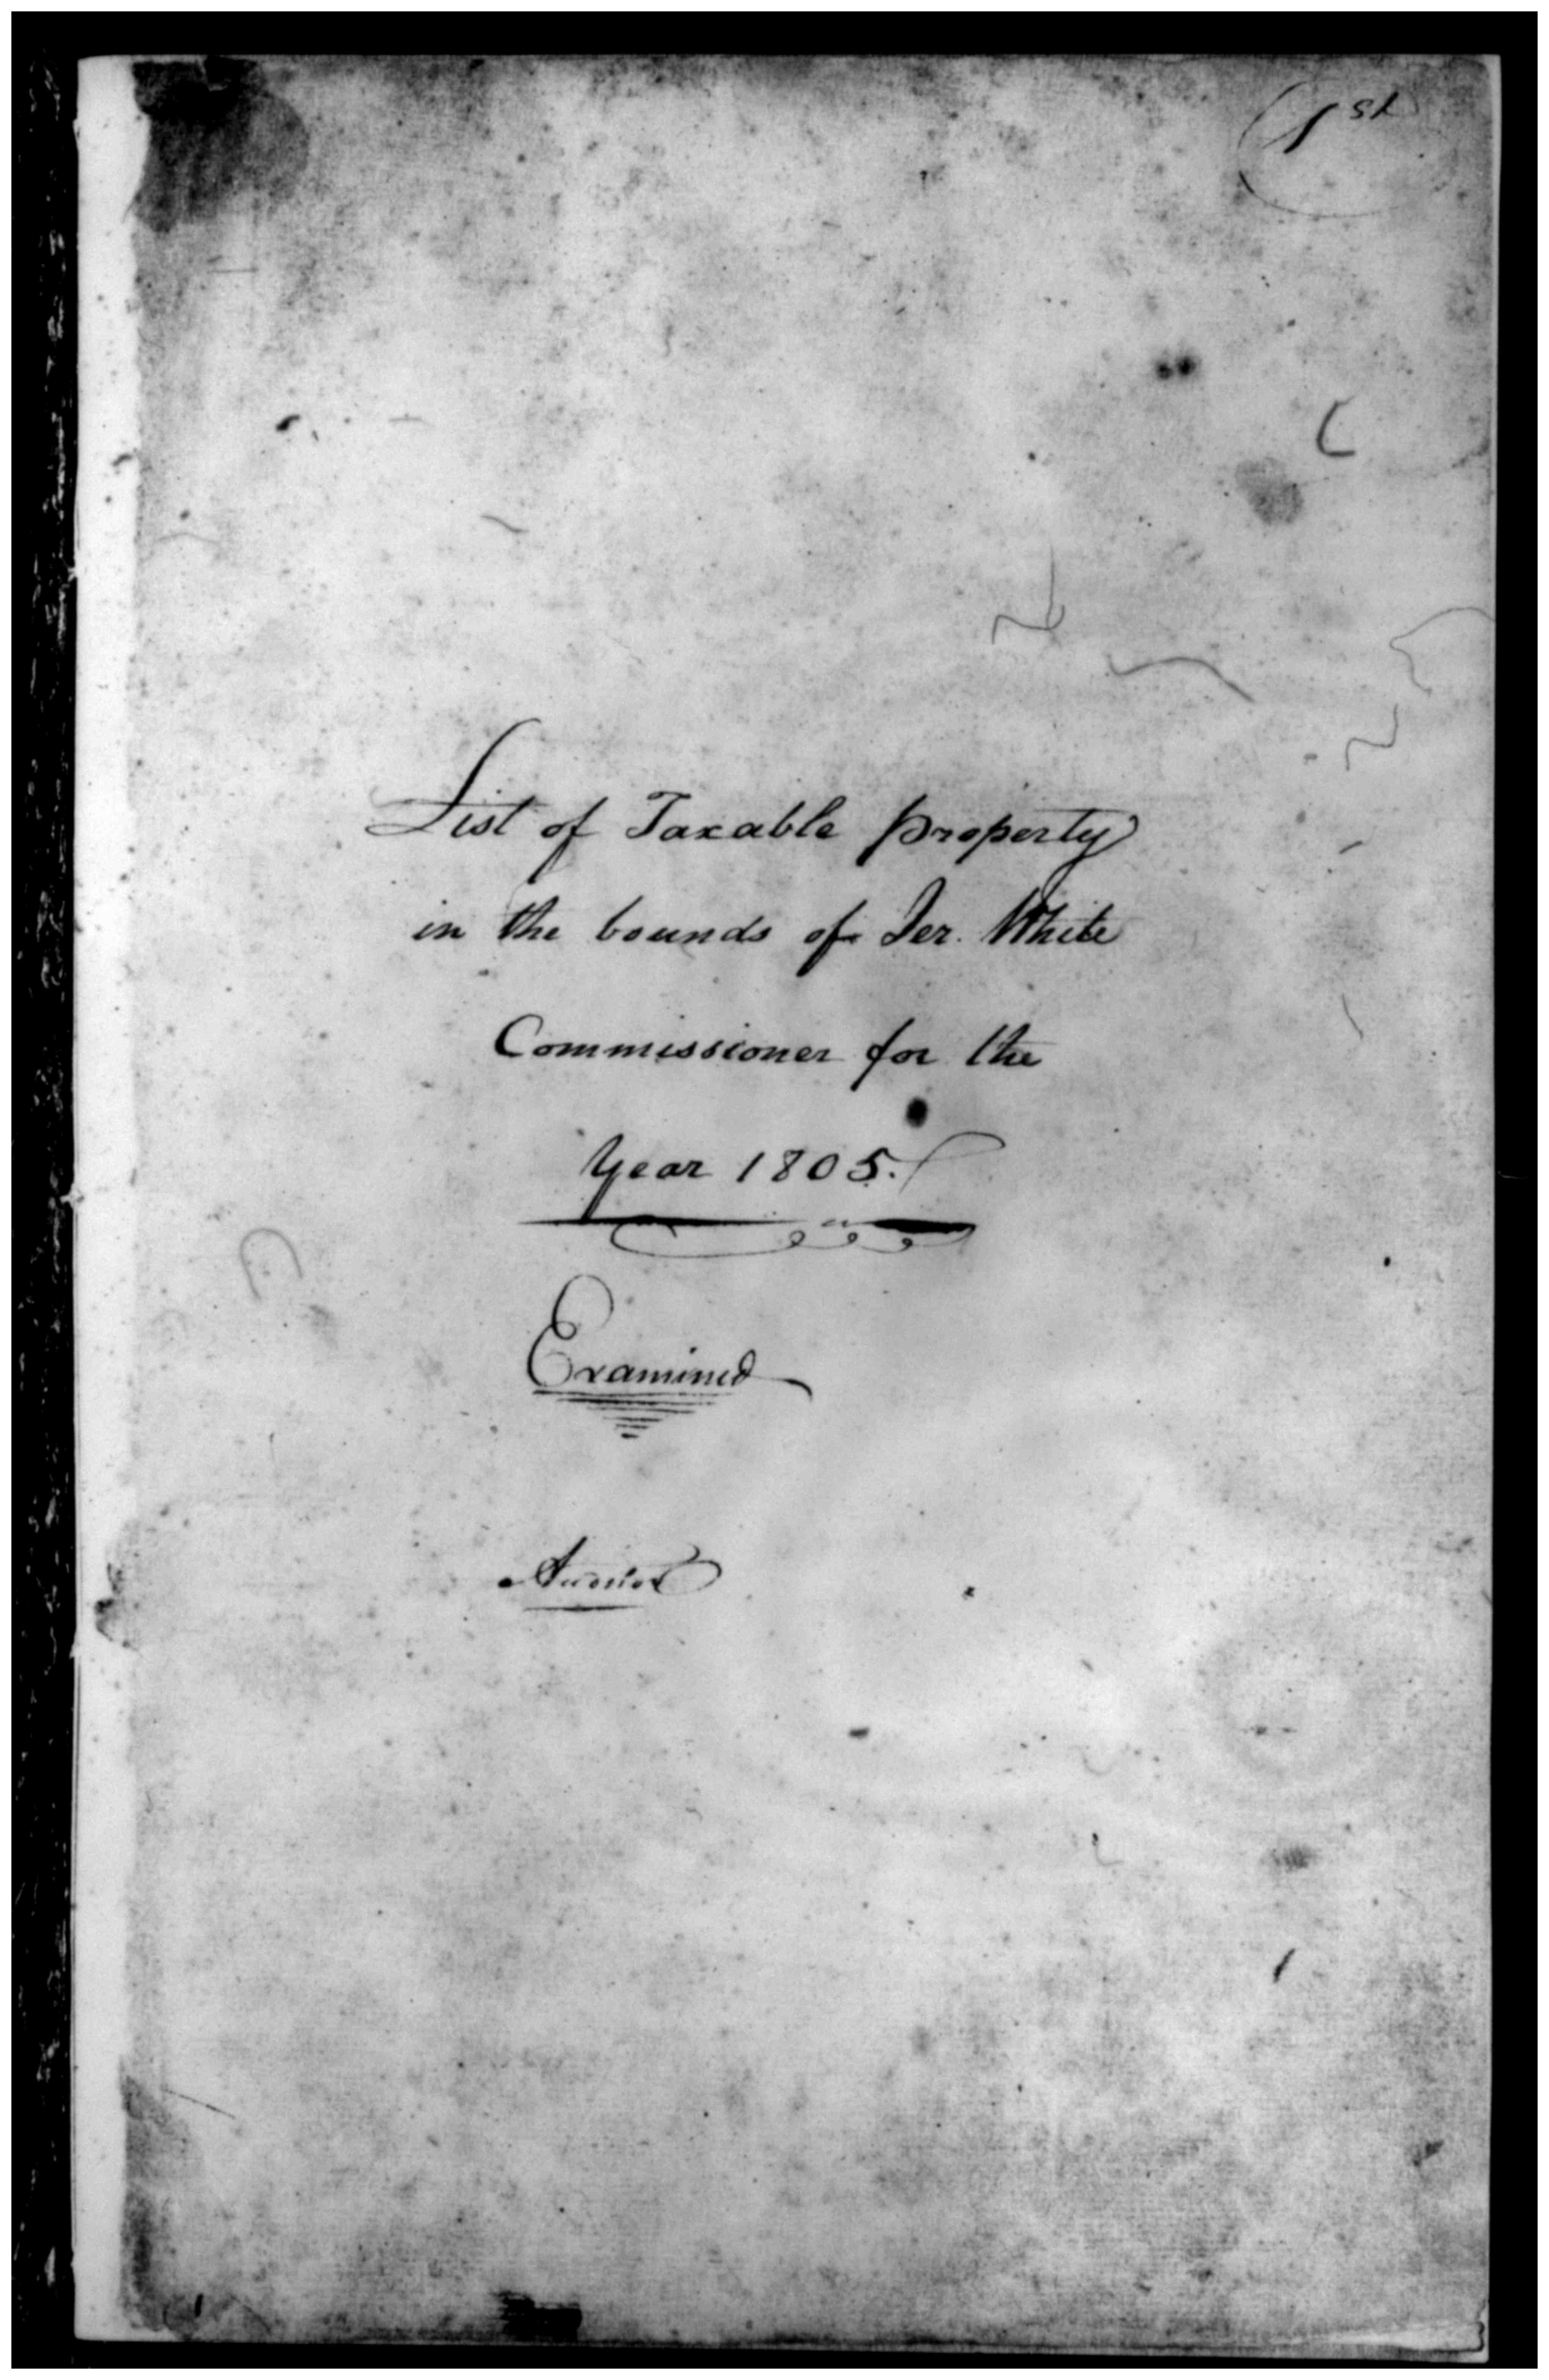 1st
List of Taxable property
in the bounds of Jer. White
Commissioner for the
Year 1805.
Examined
Auditor